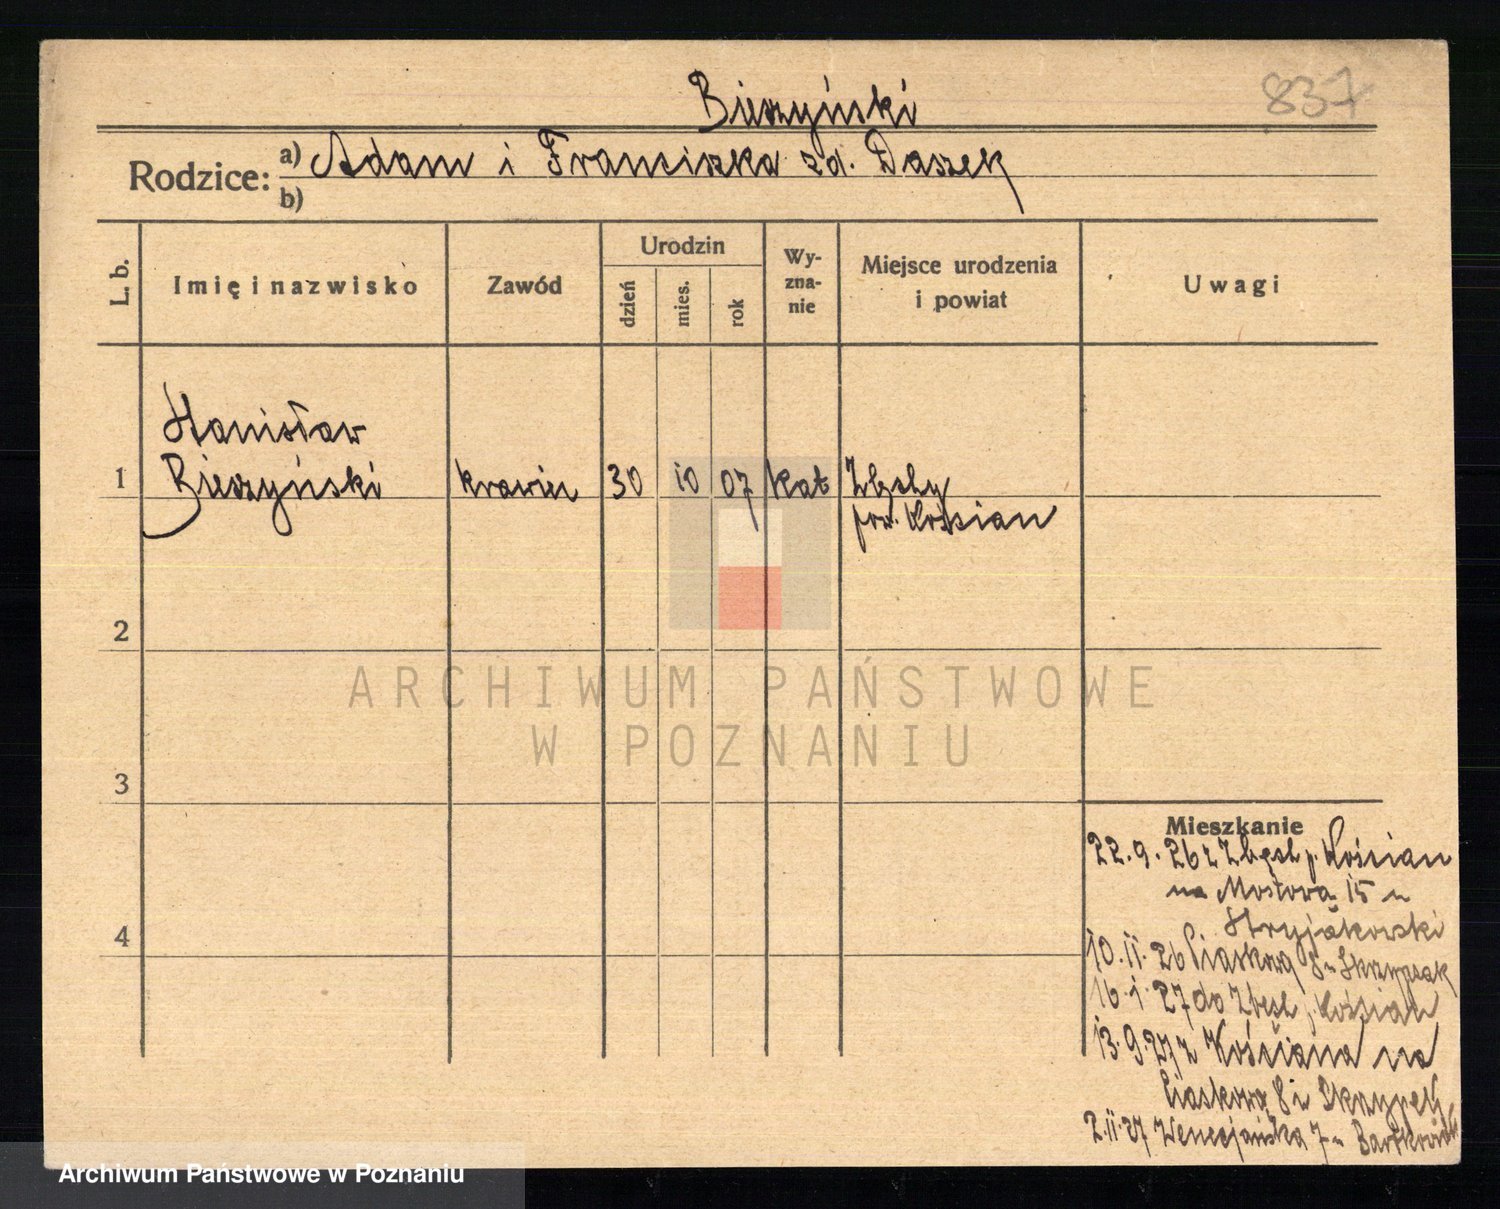 Bieszyński
837
Rodzice: a) Adam i Franciszka zd. Daszek
b)
L. b.
Imię i nazwisko
Zawód
Urodzin
dzień
mies.
rok
Wy-
zna-
nie
Miejsce urodzenia
i powiat
Uwagi
Stanisław
1 Bieszyński krawiec 30 10 07 kat Zbęchy
pow. Kościan
2
3
4
ARCHIWUM PAŃSTWOWE
W POZNANIU
Mieszkanie
22.9.26 z Zbęch p. Kościan
na Mostowa 15 u
Stryjakowski
10.11.26 Piaskowa 8 u
16.1.27 do Zbęch p. Kościan
13.9.27 z Kościana na
Piaskowa 8
2.11.27 Wenecjańska 7 u
Archiwum Państwowe w Poznaniu